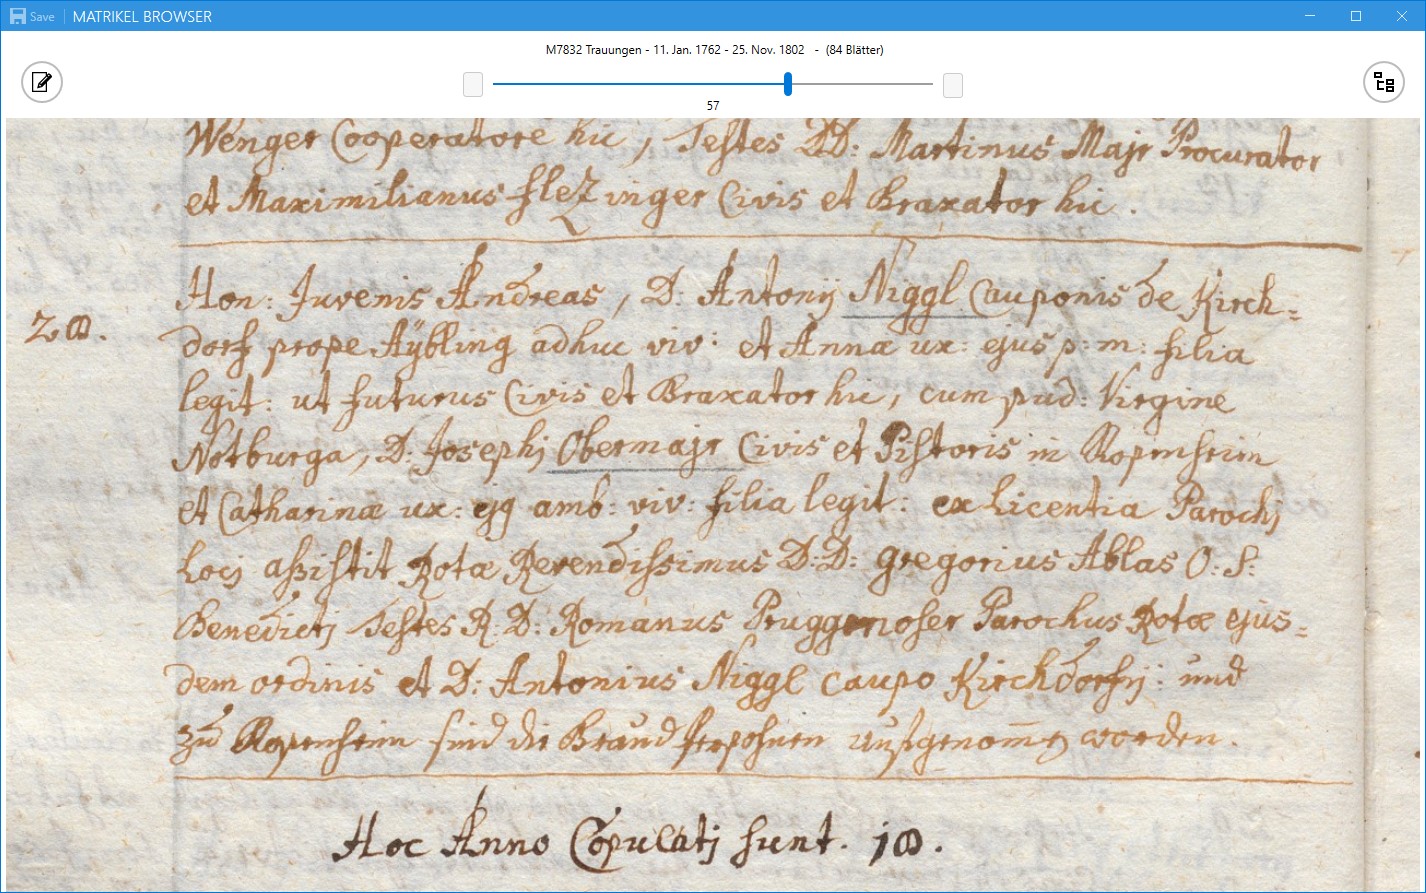 Save
MATRIKEL BROWSER
M7832 Trauungen - 11. Jan. 1762 - 25. Nov. 1802 - (84 Blätter)
57
Wenger Cooperatore hic, Testes DD: Martinus Majr Procurator
et Maximilianus Flezinger Civis et Braxator hic.
Hon: Juvenis Andreas, D: Antonij Niggl Cauponis de Kirch=
dorf prope Aÿbling adhuc viv: et Annæ ux: ejus p: m: filia
legit: ut futurus Civis et Braxator hic, cum pud: Virgine
Notburga, D: Josephj Obermajr Civis et Pistoris in Rosenheim
et Catharinæ ux: ejq amb: viv: filia legit: ex Licentia Parochj
Locj assistit Rotæ Reverendissimus D:D: Gregorius Ablas O: S:
Benedictj Testes R: D: Romanus Pruggmoser Parochus Rotæ ejus=
dem ordinis et D: Antonius Niggl caupo Kirchdorfij: und
zu Rosenheim sind die Braud Persohnen außgenomen worden.
Hoc Anno Copulatj sunt.